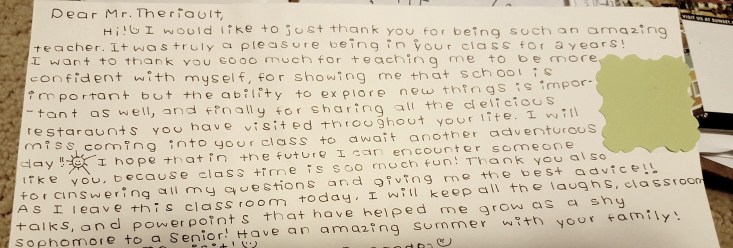 Dear Mr. Theriault,
Hi!! I would like to just thank you for being such an amazing
teacher. It was truly a pleasure being in your class for 2 years!
I want to thank you sooo much for teaching me to be more
confident with myself, for showing me that school is
important but the ability to explore new things is impor-
-tant as well, and finally for sharing all the delicious
restaraunts you have visited throughout your life. I will
miss coming into your class to await another adventurous
day!! I hope that in the future I can encounter someone
like you, because class time is soo much fun! Thank you also
for answering all my questions and giving me the best advice!!
As I leave this classroom today, I will keep all the laughs, classroom
talks, and powerpoints that have helped me grow as a shy
sophomore to a senior! Have an amazing summer with your family!
VISIT US AT